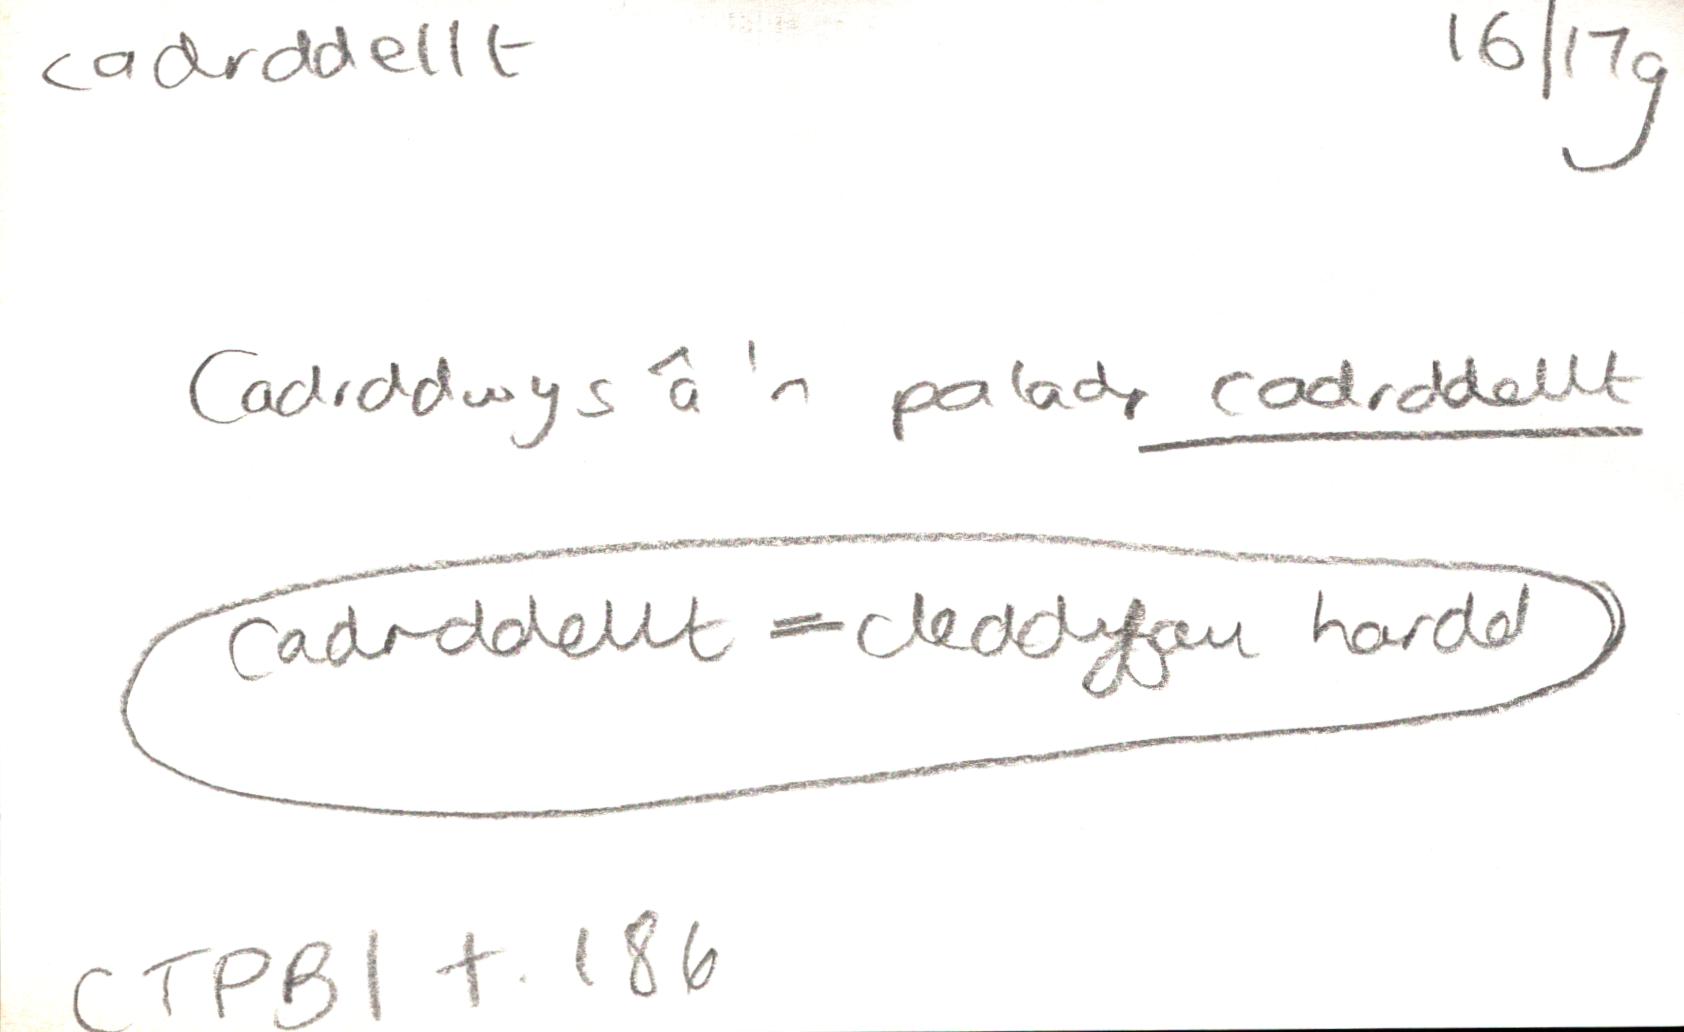 cadrddellt 16/17g
Cadrddwys â'n paladr cadrddellt
cadrddellt = cleddyfau hardd
CTPB1 t. 186